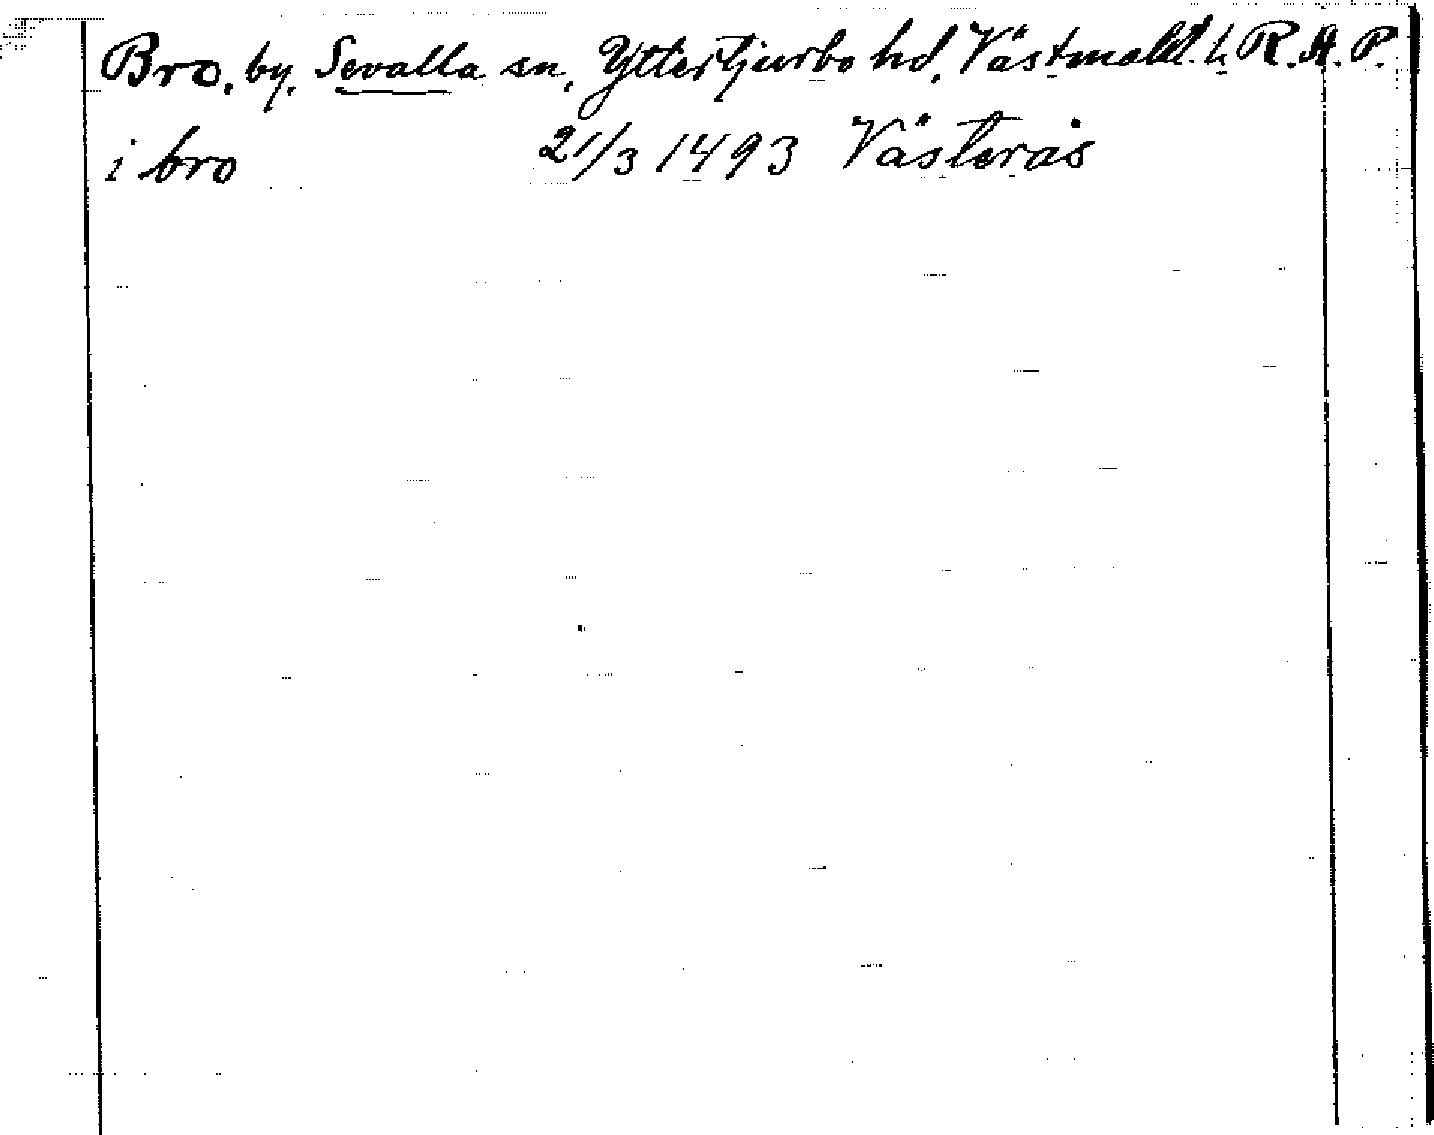 Bro, by, Sevalla sn, Yttertjurbo hd, Västmanl. l. R.A.P.
i bro 21/3 1493 Västerås